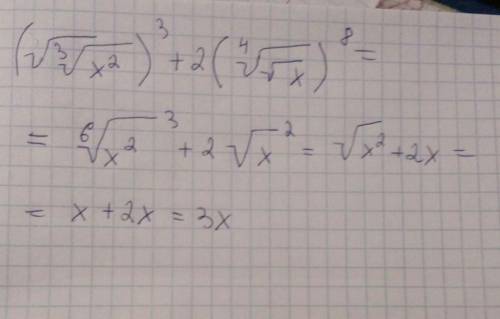 (√∛x²)³ + 2(∜√x)⁸ =
= ⁶√x²³ + 2√x² = √x² + 2x =
= x + 2x = 3x